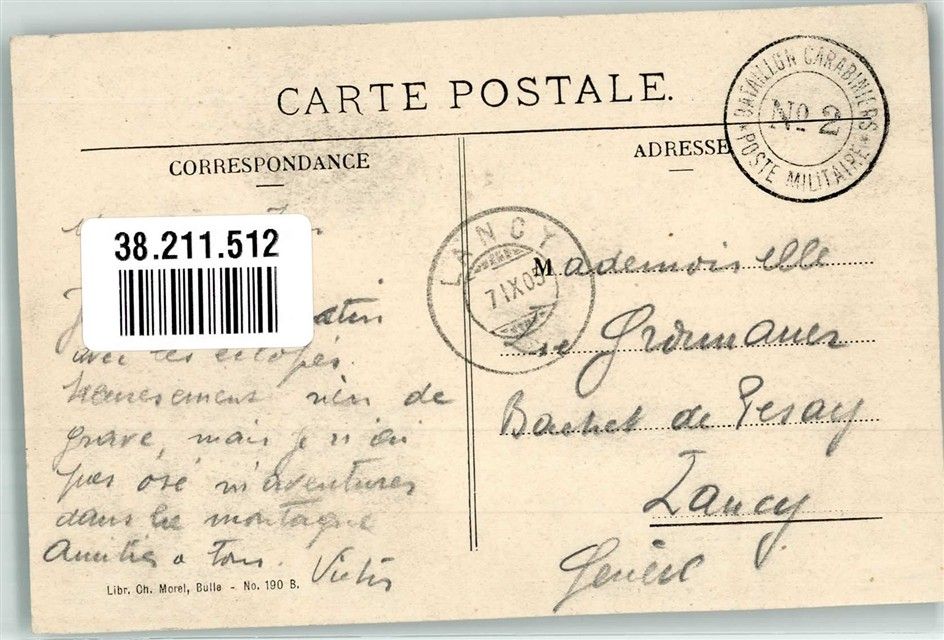 CARTE POSTALE.
BATAILLON CARABINIERS
No 2
* POSTE MILITAIRE *
CORRESPONDANCE
ADRESSE
38.211.512
LANCY
7 IX 05
avec les éclopés.
Heureusement rien de
grave, mais je n'ai
pas osé m'aventurer
dans la montagne
Amitiés a tous. Victor
Libr. Ch. Morel, Bulle - No. 190 B.
Mademoiselle
Bachet de Pesay
Lancy
Genève